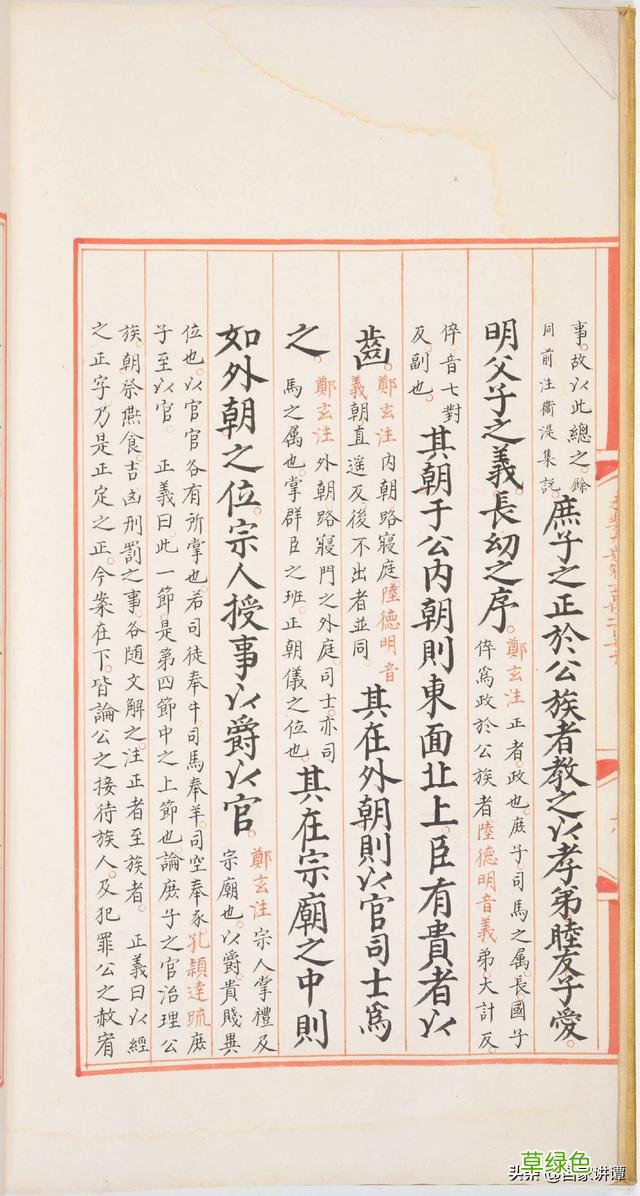 事。故以此總之。餘
同前注衛湜集說。
庶子之正於公族者教之以孝弟睦友子愛
明父子之義。長幼之序。
鄭玄注 正者政也。庶子。司馬之属。長國子
倅爲政於公族者。陸德明音義 弟大計反。
倅音七對
反。副也。
其朝于公内朝則東面北上。臣有貴者以
齒。
鄭玄注 内朝路寢庭 陸德明音
義 朝直遥反後不出者並同。
其在外朝則以官司士爲
之。
鄭玄注 外朝路寢門之外庭。司士。亦司
馬之属也。掌群臣之班。正朝儀之位也。
其在宗廟之中則
如外朝之位。宗人授事以爵以官。
鄭玄注 宗人掌禮及
宗廟也。以爵。貴賤異
位也。以官官各有所掌也。若司徒奉牛。司馬奉羊。司空奉豕。孔穎達疏 庶
子至以官。 正義曰。此一節是第四節中之上節也。論庶子之官治理公
族。朝祭燕食。吉凶刑罰之事。各随文解之。注正者至族者。 正義曰以經
之正字乃是正定之正。今案在下。皆論公之接待族人。及犯罪公之赦宥
草绿色
头条 @吕家讲谭